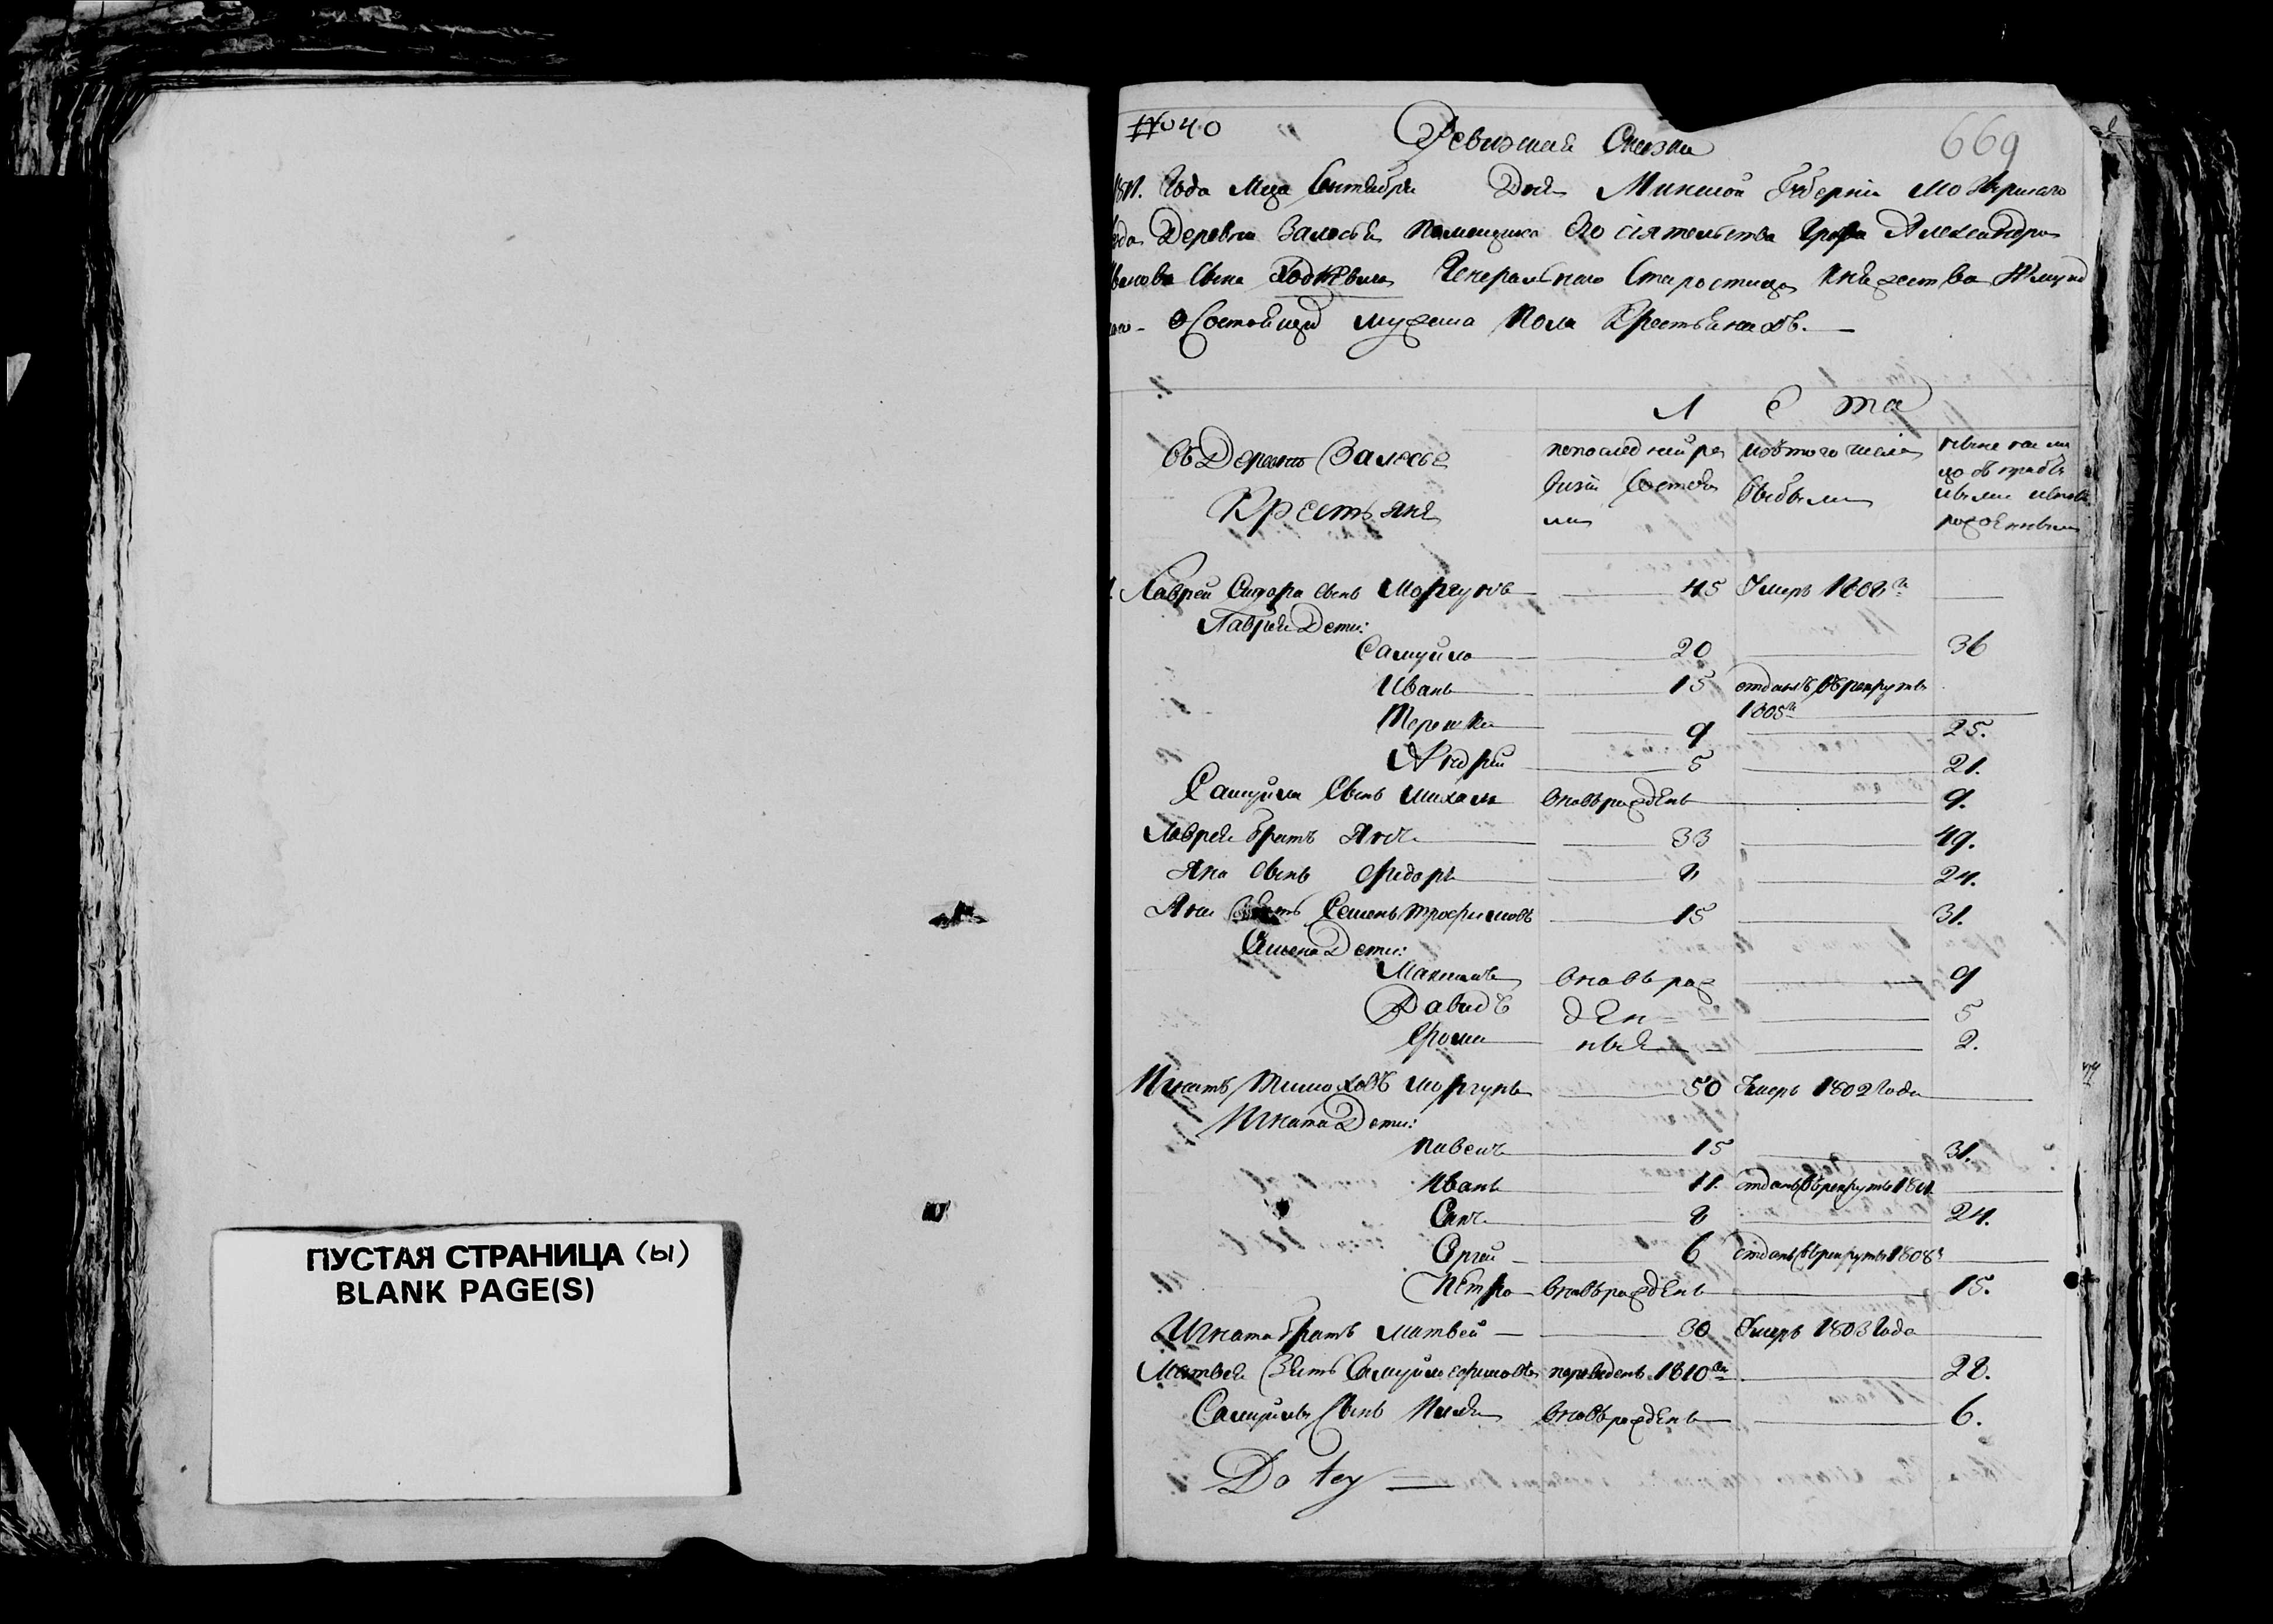 ПУСТАЯ СТРАНИЦА (Ы)
BLANK PAGE(S)
№ 40
Ревизская Сказка
669
1811. Года Мца Сентября Дня Минской Губернии Мозирскаго
Деревни Залесья Помещика Его сіятельства Графа Александра
Сына Ходкевича Генеральнаго Старостица Княжества Жмуд
о Состоящих мужеска Пола Крестьянахъ.
Лета
Въ Деревне Залесье
Крестьяне
по последней ре
визіи Состоя
ли
изъ того числа
выбыли
ныне на ли
цо съ прибы
лыми и вновь
рожденными
Лаврен Сидора сынъ Моргунъ 45 Умеръ 1808го
Лаврея Дети:
Самуйло 20 36
Иванъ 15 отданъ въ рекруты
1805го
Терешка 9 25.
Андрей 5 21.
Самуйла Сынъ Михаля вновь рожденъ 9.
Лаврея братъ Янъ 33 49.
Яна Сынъ Федоръ 8 24.
Яна Зять Семенъ Трофимовъ 15 31.
Семена Дети:
Максимъ вновь рож 9
Давидъ ден= 5
Фома ныя 2.
Игнатъ Тимоховъ Моргунъ 50 Умеръ 1802 Года
Игната Дети:
Павелъ 15 31.
Иванъ 11. отданъ въ рекруты 1811
8 24.
Сергей 6 отданъ въ рекруты 1808го
Петро вновь рожденъ 15.
Игната братъ Матвей 30 Умеръ 1803 Года
Матвея Зять Самуйло Ефимовъ переведенъ 1810го 28.
Самуйлы Сынъ Илья вновь рожденъ 6.
Do tey